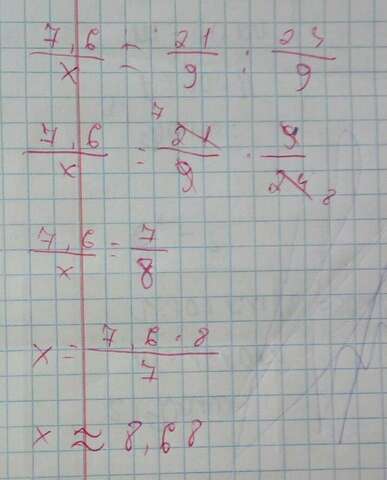 7,6/x = 21/9 : 24/9
7,6/x = 21/9 · 9/24 7 8
7,6/x = 7/8
x = 7,6·8/7
x ≈ 8,68